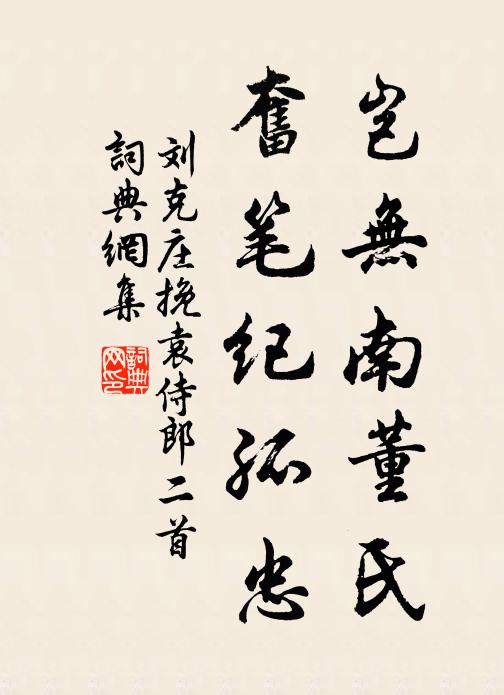 岂無南董氏
奮笔纪孤忠
刘克庄挽袁侍郎二首
詞典網集
詞典网印